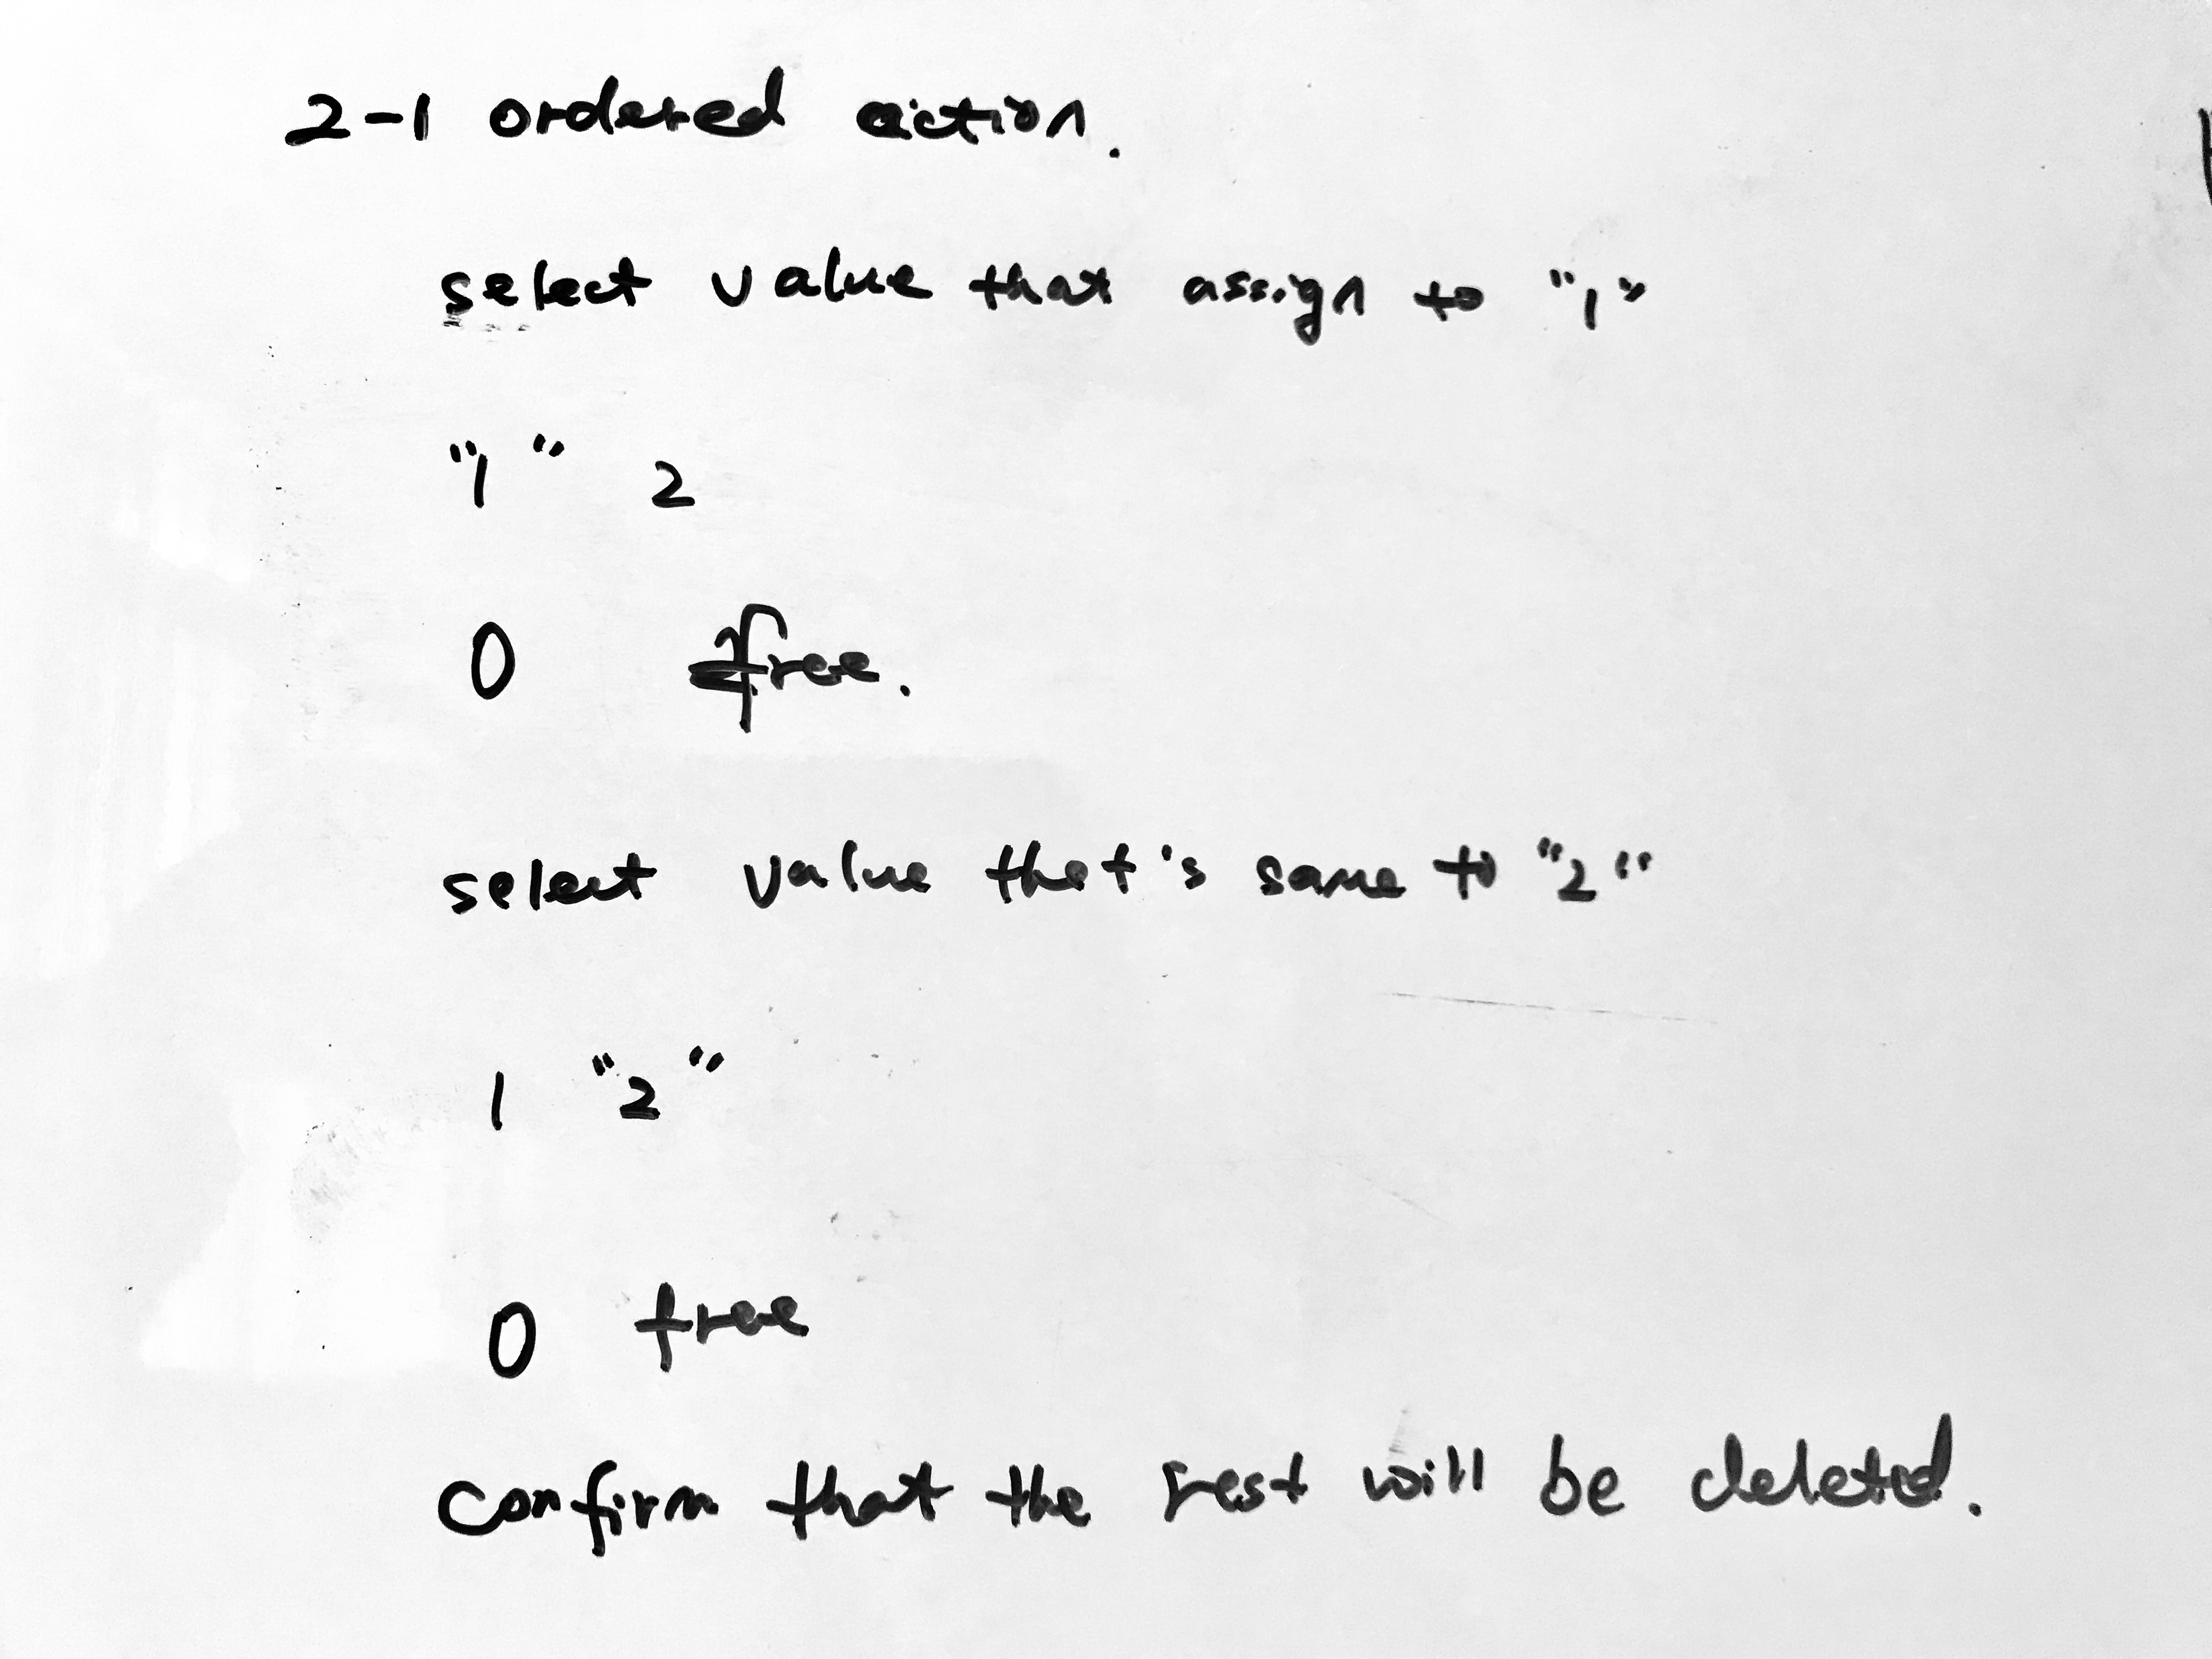 2-1 ordered action.
select value that assign to "1"
"1" 2
0 free.
select value that's same to "2"
1 "2"
0 free
confirm that the rest will be deleted.